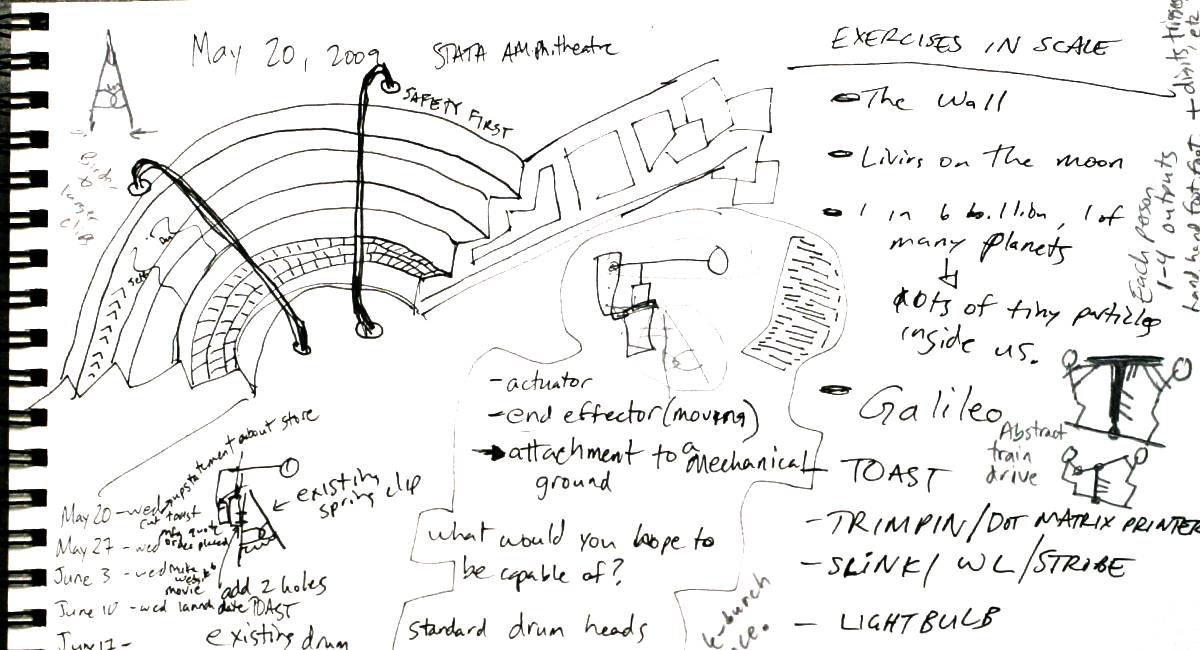 May 20, 2009
STATA AMPhitheatre
SAFETY FIRST
EXERCISES IN SCALE
The Wall
Livirs on The moon
1 in 6 billion, 1 of
many planets
lots of tiny particles
inside us.
Galileo
Abstract
train
drive
- TOAST
- TRIMPIN/DOT MATRIX PRINTER
- SLINK/ WL/STROBE
- LIGHTBULB
Each person
1-4 outputs
hand hand foot foot
+ digits, trigger, etc
- actuator
- end effector (moving)
→ attachment to a mechanical
ground
what would you hope to
be capable of?
standard drum heads
upstatement about store
existing
spring clip
May 20 - wed
cut toast
May 27 - wed
mfg quote
order placed
June 3 - wed make
website
movie
add 2 holes
June 10 - wed launch date TOAST
June 17 -
existing drum